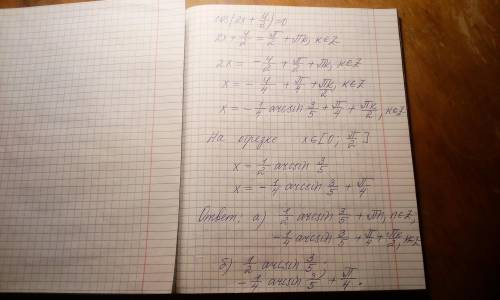 cos(2x + φ/2) = 0
2x + φ/2 = π/2 + πk, k∈Z
2x = - φ/2 + π/2 + πk, k∈Z
x = - φ/4 + π/4 + πk/2, k∈Z
x = - 1/4 arcsin 3/5 + π/4 + πk/2, k∈Z
На отрезке x∈[0; π/2]
x = 1/2 arcsin 3/5
x = - 1/4 arcsin 3/5 + π/4
Ответ: а) 1/2 arcsin 3/5 + πn, n∈Z,
- 1/4 arcsin 3/5 + π/4 + πk/2, k∈Z
б) 1/2 arcsin 3/5;
- 1/4 arcsin 3/5 + π/4.